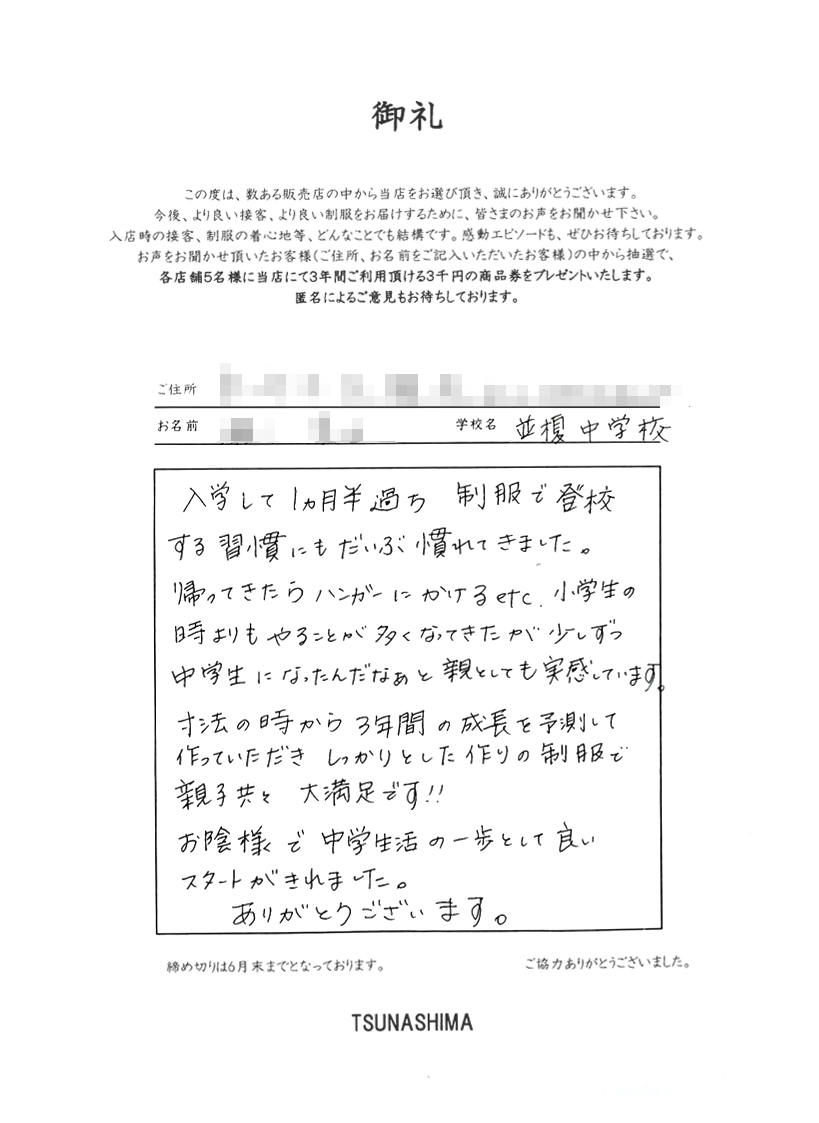 御礼
この度は、数ある販売店の中から当店をお選び頂き、誠にありがとうございます。
今後、より良い接客、より良い制服をお届けするために、皆さまのお声をお聞かせ下さい。
入店時の接客、制服の着心地等、どんなことでも結構です。感動エピソードも、ぜひお待ちしております。
お声をお聞かせ頂いたお客様(ご住所、お名前をご記入いただいたお客様)の中から抽選で、
各店舗5名様に当店にて3年間ご利用頂ける3千円の商品券をプレゼントいたします。
匿名によるご意見もお待ちしております。
ご住所
お名前 学校名 並榎中学校
入学して1ヵ月半過ち 制服で登校
する習慣にもだいぶ慣れてきました。
帰ってきたらハンガーにかけるetc. 小学生の
時よりもやることが多くなってきたが少しずつ
中学生になったんだなぁと親としても実感しています。
寸法の時から3年間の成長を予測して
作っていただきしっかりとした作りの制服で
親子共々 大満足です!!
お陰様で中学生活の一歩として良い
スタートがきれました。
ありがとうございます。
締め切りは6月末までとなっております。 ご協力ありがとうございました。
TSUNASHIMA